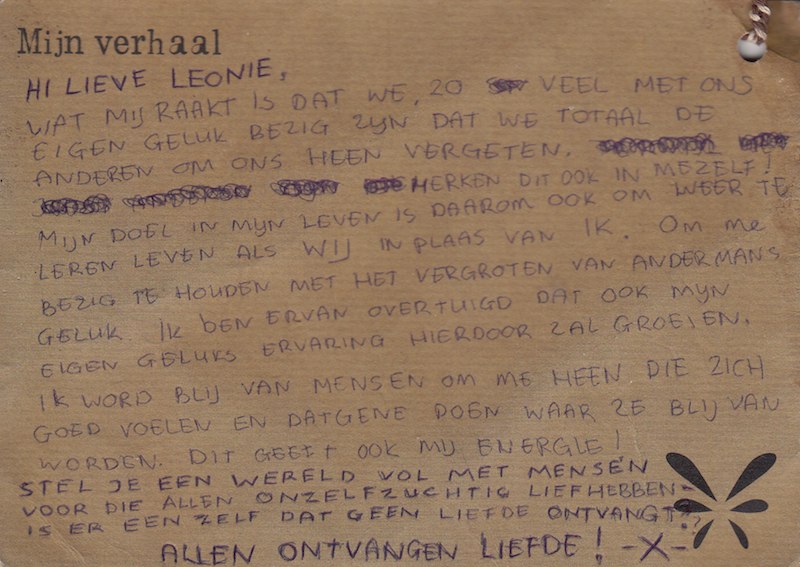 Mijn verhaal
HI LIEVE LEONIE,
WAT MIJ RAAKT IS DAT WE, ZO VEEL MET ONS
EIGEN GELUK BEZIG ZIJN DAT WE TOTAAL DE
ANDEREN OM ONS HEEN VERGETEN.
HERKEN DIT OOK IN MEZELF!
MIJN DOEL IN MIJN LEVEN IS DAAROM OOK OM WEER TE
LEREN LEVEN ALS WIJ IN PLAAS VAN IK. OM ME
BEZIG TE HOUDEN MET HET VERGROTEN VAN ANDERMANS
GELUK. IK BEN ERVAN OVERTUIGD DAT OOK MIJN
EIGEN GELUKS ERVARING HIERDOOR ZAL GROEIEN.
IK WORD BLIJ VAN MENSEN OM ME HEEN DIE ZICH
GOED VOELEN EN DATGENE DOEN WAAR ZE BLIJ VAN
WORDEN. DIT GEEFT OOK MIJ ENERGIE!
STEL JE EEN WERELD VOL MET MENSEN
VOOR DIE ALLEN ONZELFZUCHTIG LIEFHEBBEN-
IS ER EEN ZELF DAT GEEN LIEFDE ONTVANGT?
ALLEN ONTVANGEN LIEFDE! -X-